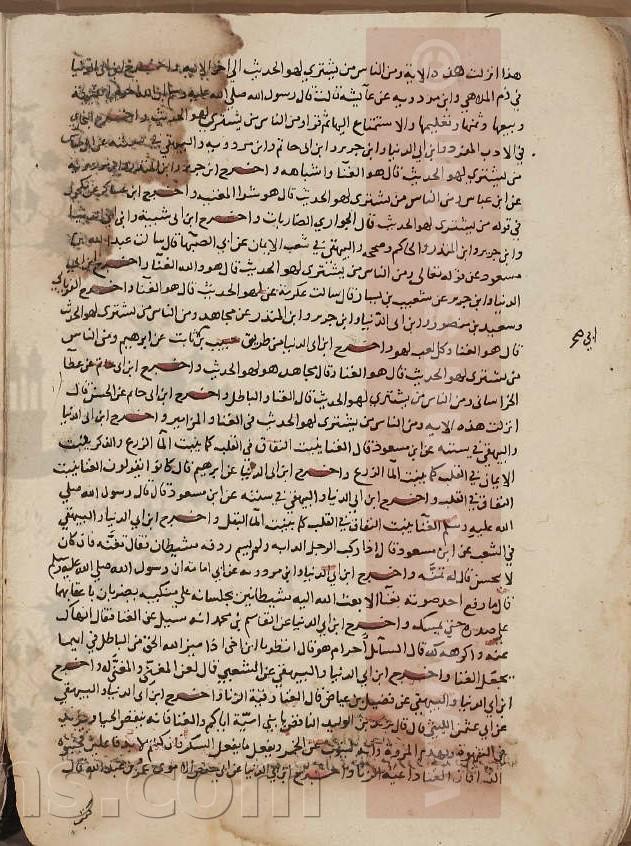 هذا انزلت هذه الاية ومن الناس من يشتري لهو الحديث الى اخر الاية واخرج ابن ابى الدنيا
في ذم الملاهي وابن مردويه عن عايشة قالت قال رسول الله صلى الله عليه وسلم ان الله حرم القينة
وبيعها وثمنها وتعليمها والاستماع اليها ثم قرا ومن الناس من يشتري لهو الحديث واخرج البخاري
في الادب المفرد وابن ابى الدنيا وابن جرير وابن ابى حاتم وابن مردويه والبيهقي في سننه عن ابن عباس
من يشتري لهو الحديث قال هو الغنا واشباهه واخرج ابن جرير وابن المنذر وابن مردويه
عن ابن عباس ومن الناس من يشتري لهو الحديث قال هو شرا المغنيه واخرج ابن عساكر عن مكحول
في قوله من يشتري لهو الحديث قال الجواري الضاربات واخرج ابن ابى شيبة وابن ابى الدنيا
وابن جرير وابن المنذر والحاكم وصححه والبيهقي في شعب الايمان عن ابى الصهبا قال سالت عبد الله ابن
مسعود عن قوله تعالى ومن الناس من يشتري لهو الحديث قال هو والله الغنا واخرج ابن ابى
الدنيا وابن جرير عن شعيب بن يسار قال سالت عكرمة عن لهو الحديث قال هو الغنا واخرج الفريابي
وسعيد بن منصور وابن ابى الدنيا وابن جرير وابن المنذر عن مجاهد ومن الناس من يشتري لهو الحديث
قال هو الغنا وكل لعب لهو واخرج ابن ابى الدنيا من طريق حبيب بن ثابت عن ابرهيم ومن الناس
ابي صح
من يشتري لهو الحديث قال هو الغنا وقال مجاهد هو لهو الحديث واخرج ابن ابى حاتم عن عطا
الخراساني ومن الناس من يشتري لهو الحديث قال الغنا والباطل واخرج ابن ابى حاتم عن الحسن قال
انزلت هذه الاية ومن الناس من يشتري لهو الحديث في الغنا والمزامير واخرج ابن ابى الدنيا
والبيهقي في سننه عن ابن مسعود قال الغنا ينبت النفاق في القلب كما ينبت الما الزرع والذكر ينبت
الايمان في القلب كما ينبت الما الزرع واخرج ابن ابى الدنيا عن ابرهيم قال كانوا يقولون الغنا ينبت
النفاق في القلب واخرج ابن ابى الدنيا والبيهقي في سننه عن ابن مسعود قال قال رسول الله صلى
الله عليه وسلم الغنا ينبت النفاق في القلب كما ينبت الما البقل واخرج ابن ابى الدنيا والبيهقي
في الشعب عن ابن مسعود قال اذا ركب الرجل الدابة ولم يسم ردفه شيطان فقال تغنه فان كان
لا يحسن قال له تمنه واخرج ابن ابى الدنيا وابن مردويه عن ابى امامة ان رسول الله صلى الله عليه وسلم
قال ما رفع احد صوته بغنا الا بعث الله اليه شيطانين يجلسان على منكبيه يضربان باعقابهما
على صدره حتى يمسك واخرج ابن ابى الدنيا عن القاسم بن محمد انه سيل عن الغنا فقال انهاك
عنه واكرهه لك قال السائل احرام هو قال انظر يا ابن اخى اذا ميز الله الحق من الباطل في ايهما
يجعل الغنا واخرج ابن ابى الدنيا والبيهقي عن الشعبي قال لعن المغني والمغنى له واخرج
ابن ابى الدنيا والبيهقي عن فضيل بن عياض قال الغنا رقية الزنا واخرج ابن ابى الدنيا والبيهقي
عن ابى عثمن الليثي قال قال يزيد بن الوليد الناقص يا بني امية اياكم والغنا فانه ينقص الحيا ويزيد
في الشهوة ويهدم المروة وانه لينوب عن الخمر ويفعل ما يفعل السكر فان كنتم لا بد فاعلين فجنبوه
النسا فان الغنا داعية الزنا واخرج ابن ابى الدنيا عن ابى جعفر الاموى عمر بن عبد الله قال
كتب